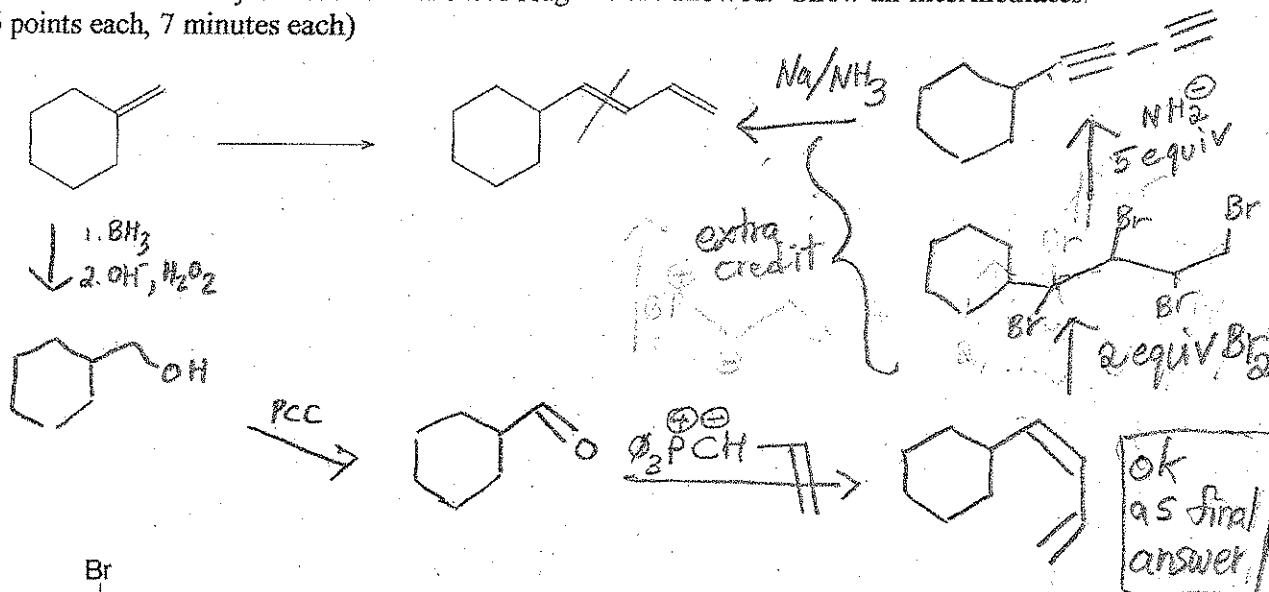 points each, 7 minutes each)
Na/NH3
NH2⊖
5 equiv
1. BH3
2. OH⁻, H2O2
extra
credit
Br
Br
Br
Br
2 equiv Br2
OH
PCC
O
Ø3P⊕CH⊖
ok
as final
answer
Br